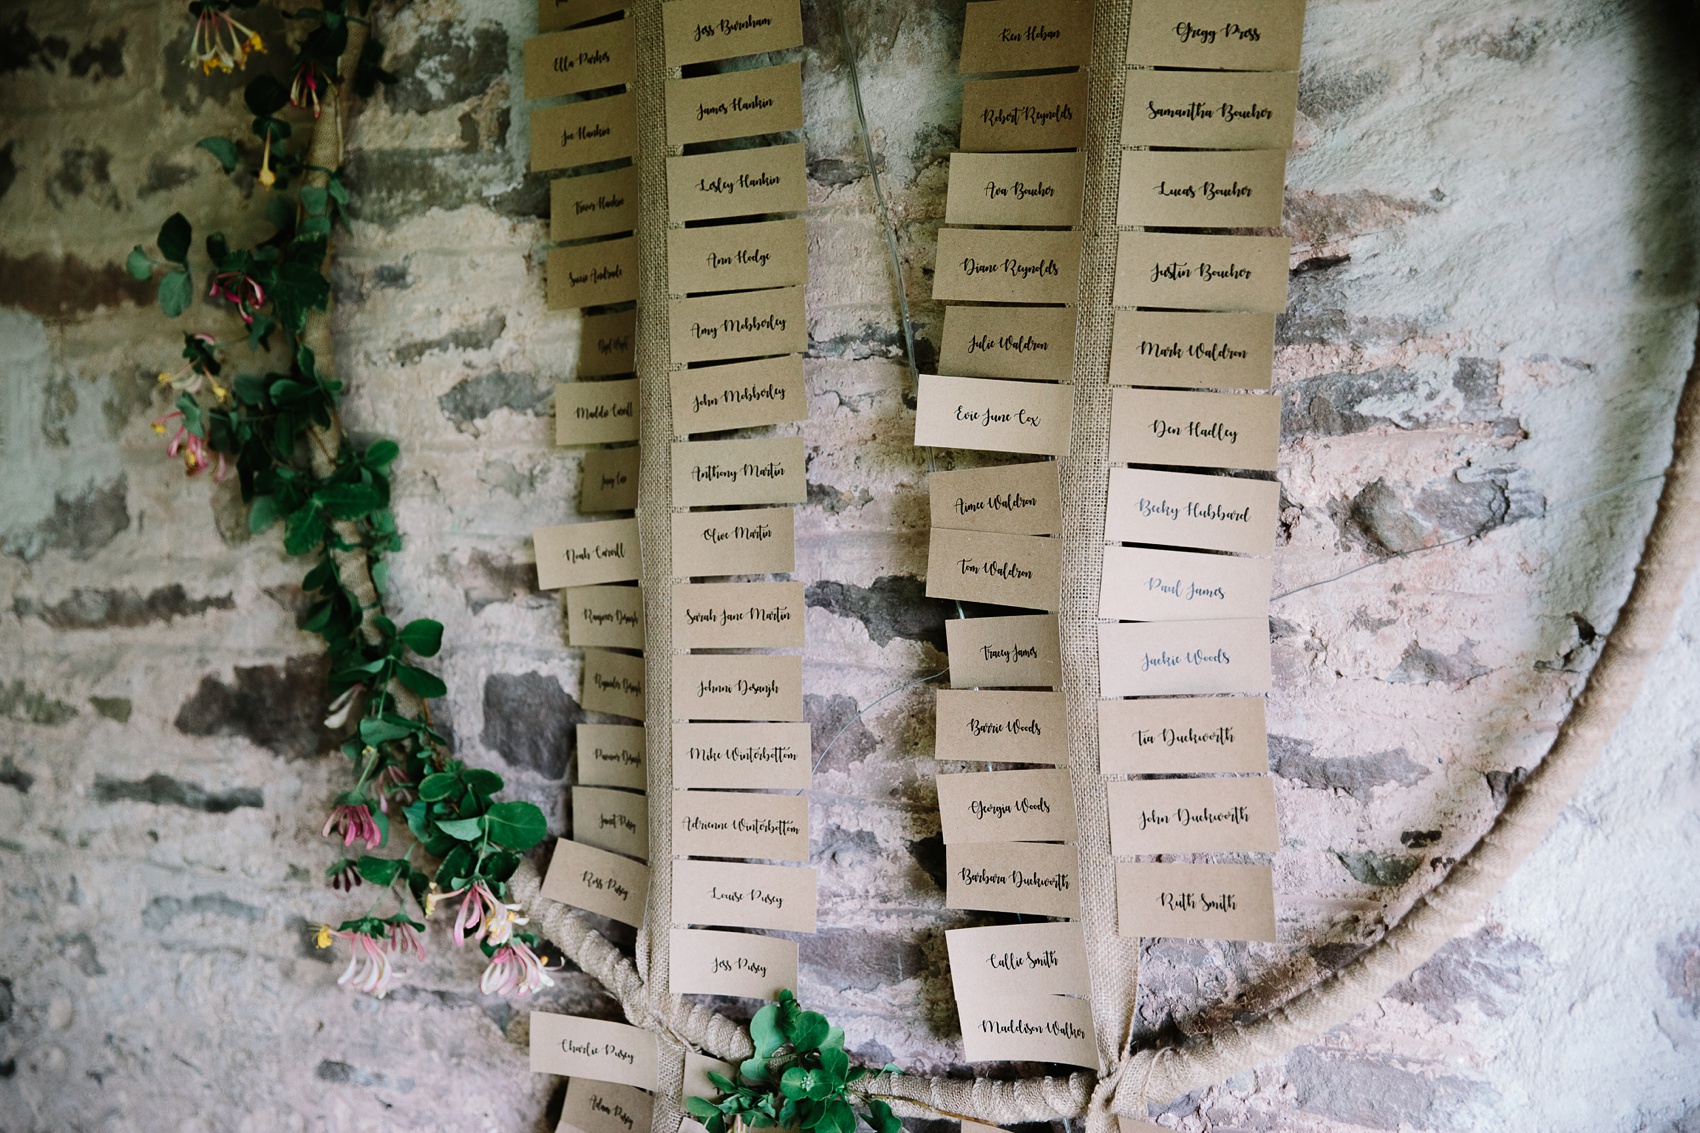 Ella Parkes
Joe Hankin
Trevor Hankin
Susie Andrade
Maddie
Noah
Ross Pusey
Charlie Pusey
Adam Pusey
Jess Burnham
James Hankin
Lesley Hankin
Ann Hodge
Amy Mobberley
John Mobberley
Anthony Martin
Olive Martin
Sarah Jane Martin
Johnni Dosanjh
Mike Winterbottom
Adrienne Winterbottom
Louise Pusey
Jess Pusey
Ren Hoban
Robert Reynolds
Ava Boucher
Diane Reynolds
Julie Waldron
Evie June Cox
Aimee Waldron
Tom Waldron
Tracey James
Barrie Woods
Georgia Woods
Barbara Duckworth
Callie Smith
Maddison Walker
Gregg Press
Samantha Boucher
Lucas Boucher
Justin Boucher
Mark Waldron
Den Hadley
Becky Hubbard
Paul James
Jackie Woods
Tia Duckworth
John Duckworth
Ruth Smith